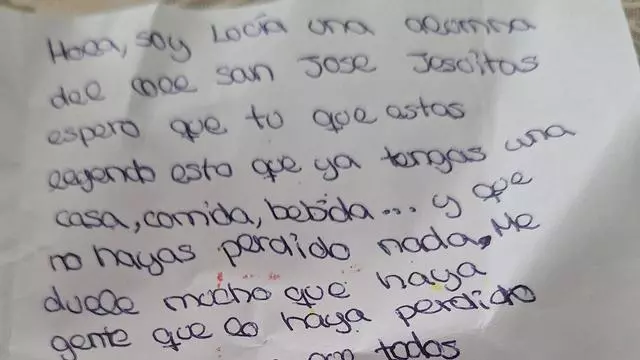 Hola, soy Lucía una alumna
del cole san Jose Jesuitas
espero que tu que estas
leyendo esto que ya tengas una
casa, comida, bebida... y que
no hayas perdido nada, Me
duele mucho que haya
gente que lo haya perdido
todas